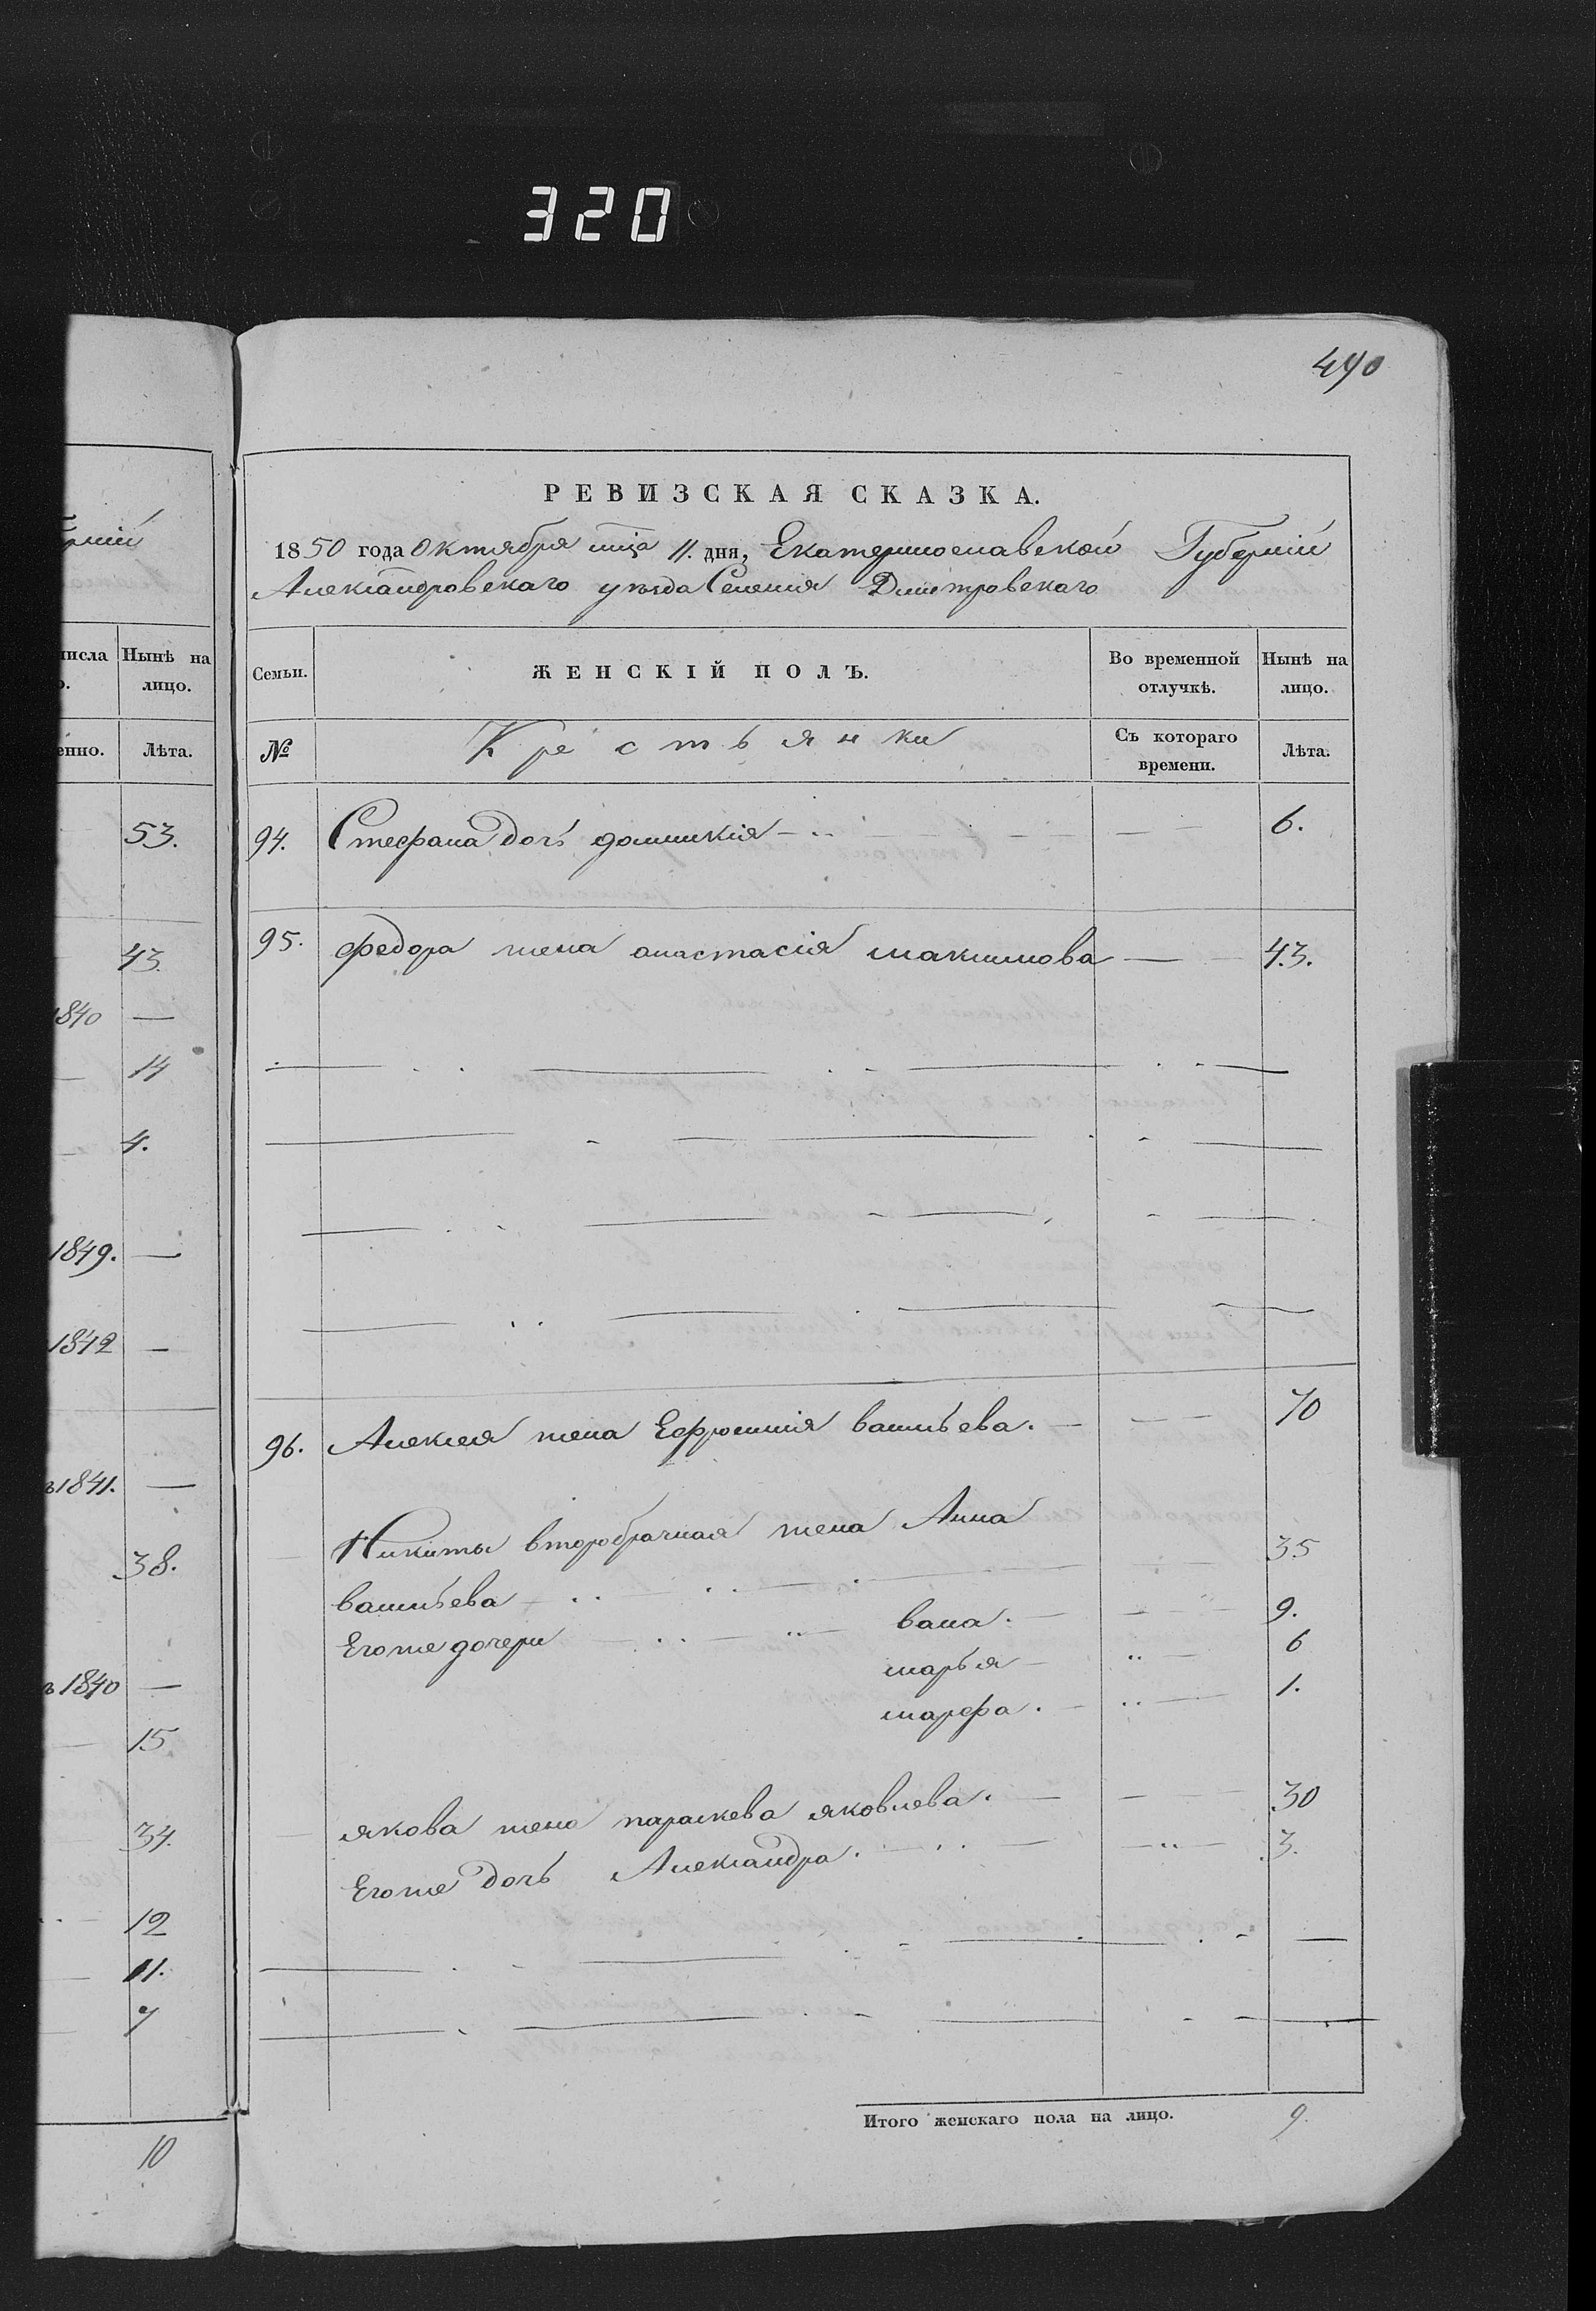 320
490
рніи
РЕВИЗСКАЯ СКАЗКА.
1850 года Октября мца 11. дня, Екатеринославской Губерніи
Александровскаго уѣзда Селенія Дмитровскаго
числа
Нынѣ на
лицо.
енно.
Лѣта.
Семьи.
ЖЕНСКІЙ ПОЛЪ.
Во временной
отлучкѣ.
Нынѣ на
лицо.
№
Крестьянки
Съ котораго
времени.
Лѣта.
53.
43.
1840 —
14
4.
1849. —
1842 —
1841. —
38.
1840 —
15
34.
12
11.
7
10
94. Стефана дочь домникія — 6.
95. Федора жена анастасія максимова — 43.
96. Алексея жена Ефросинія васильева. — 70
Никиты второбрачная жена Анна
васильева — 35
Егоже дочери — вана. — 9.
марья — 6
марфа. — 1.
якова жена параскева яковлева. — 30
Егоже дочь Александра. — 3.
Итого женскаго пола на лицо. 9.